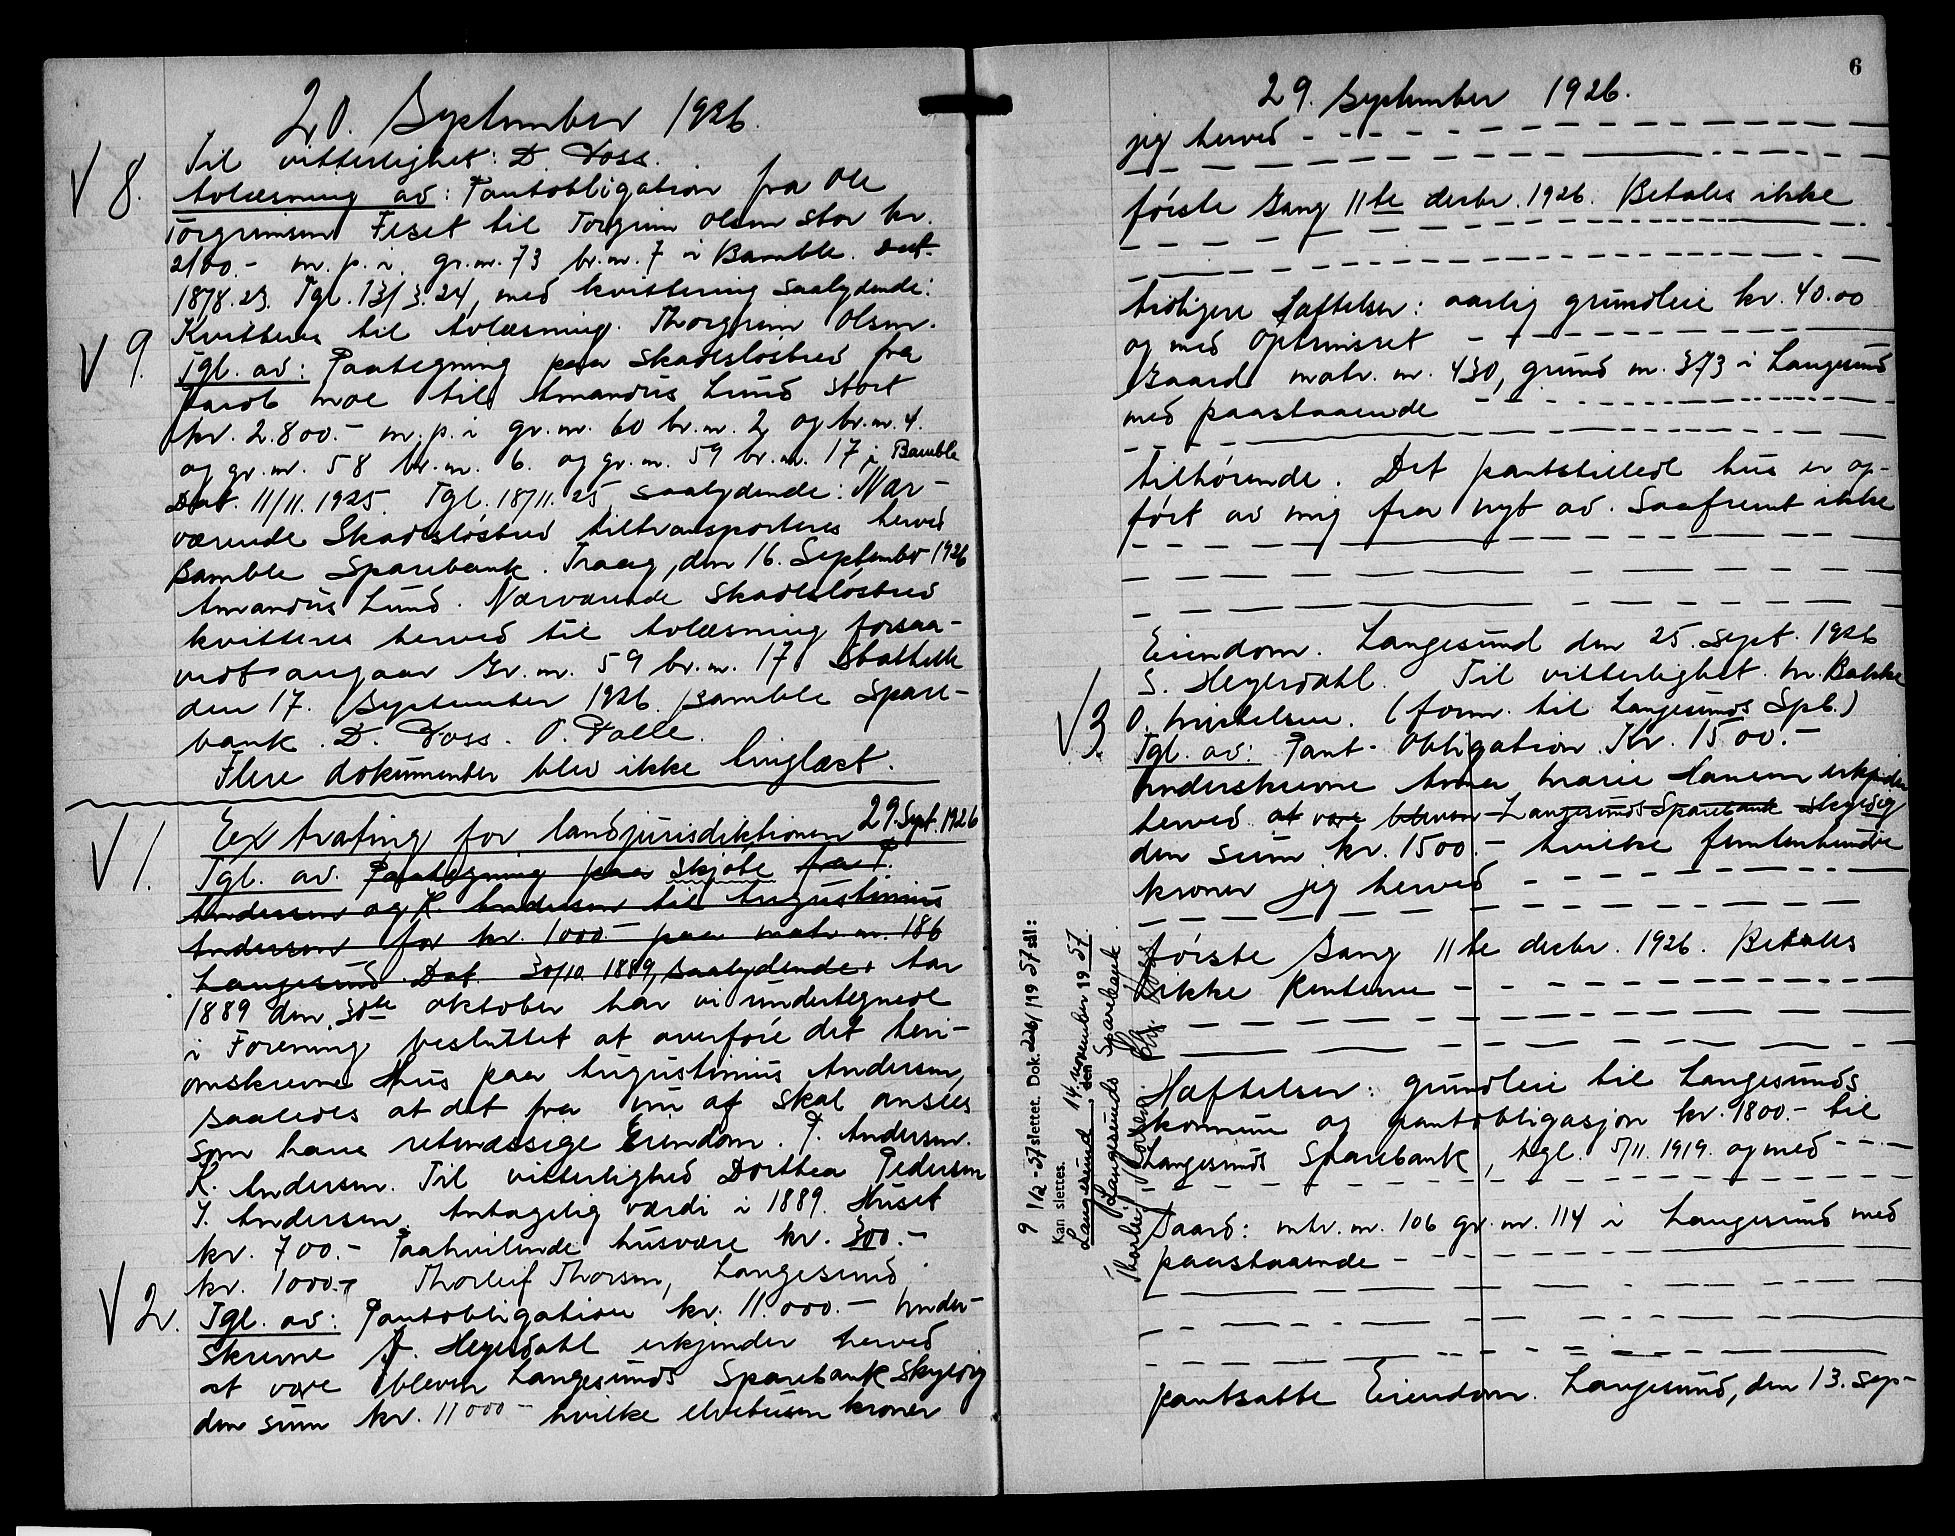 20. September 1926.
Til vitterlighet: D. Voss.
V 8. Avlæsning av: Pantobligation fra Ole
Torgrimsen Feset til Torgrim Olsen stor kr.
2100.- m. p. i. gr. nr. 73 br. nr. 7 i Bamble. Dat.
18/8.23. Tgl. 13/3.24, med kvittering saalydende:
Kvitteres til avlæsning. Thorgrim Olsen.
V 9. Tgl. av: Paategning paa skadesløsbrev fra
Jacob Moe til Amandus Lund stort
kr. 2.800.- m. p. i gr. nr. 60 br. nr. 2 og br. nr. 4.
og gr. nr. 58 br. nr. 6. og gr. nr. 59 br. nr. 17 i Bamble
Dat. 11/11. 1925. Tgl. 18/11. 25, saalydende: Nær-
værende Skadesløsbrev tiltransporteres herved
Bamble Sparebank. Traag, den 16. September 1926
Amandus Lund. Nærværende Skadesløsbrev
kvitteres herved til Avlæsning forsaa-
vidt angaar Gr. nr. 59 br. nr. 17 Stathelle
den 17. September 1926. Bamble Spare-
bank. D. Voss. O. Palle.
Flere dokumenter blev ikke tinglæst.
Extrating for landjurisdiktionen 29. Sept. 1926
V 1. Tgl. av. Paategning paa skjøte fra P.
Andersen og K. Andersen til Augustinius
Andersen for kr. 1000.- paa matr. nr. 186
Langesund. Dat. 30/10 1889, saalydende: Aar
1889 den 30te oktober har vi undertegnede
i Forening besluttet at overføre det heri-
omskrevne Hus paa Augustinius Andersen,
saaledes at det fra nu af skal ansees
som hans retmæssige Eiendom. P. Andersen.
K. Andersen. Til vitterlighed Dorthea Pedersen
J. Andersen. Antagelig værdi i 1889. Huset
kr. 700.- Paahvilende husvære kr. 300.-
kr. 1000.- Thorleif Thorsen, Langesund.
V 2. Tgl. av: Pantobligation kr. 11.000.- Under-
skrevne S. Heyerdahl erkjender herved
at være bleven Langesunds Sparebank skyldig
den sum kr. 11000- hvilke elvetusen kroner
6
29. September 1926.
jeg herved - - -
første Gang 11te decbr. 1926. Betales ikke
tidligere Hæftelser: aarlig grundleie kr. 40.00
og med Optrinsret - - -
Gaard matr. nr. 430, grund nr. 373 i Langesund
med paastaaende - - -
tilhørende. Det pantstillede hus er op-
ført av mig fra nyt av. Saafremt ikke
Eiendom. Langesund den 25. sept. 1926
S. Heyerdahl. Til vitterlighet. M. Bakke
O. Mikelsen. (form. til Langesunds Spb.)
V 3. Tgl. av: Pant-Obligation Kr. 1500.-
Underskrevne Anna Marie Hansen erkjender
herved at være bleven Langesunds Sparebank skyldig
den sum kr. 1500.- hvilke femtenhundre
kroner jeg herved - - -
første Gang 11te decbr. 1926. Betales
ikke Renterne - - -
Hæftelser: grundleie til Langesunds
kommune og pantobligasjon kr. 1800.- til
Langesunds Sparebank, tgl. 5/11. 1919. og med - - -
Gaard: mtr. nr. 106 gr. nr. 114 i Langesund med
paastaaende - - -
pantsatte Eiendom. Langesund, den 13. sep-
9/12-57 slettet. Dok. 226/1957 sål:
Kan slettes.
Langesund den 14. november 1957.
Langesunds Sparebank.